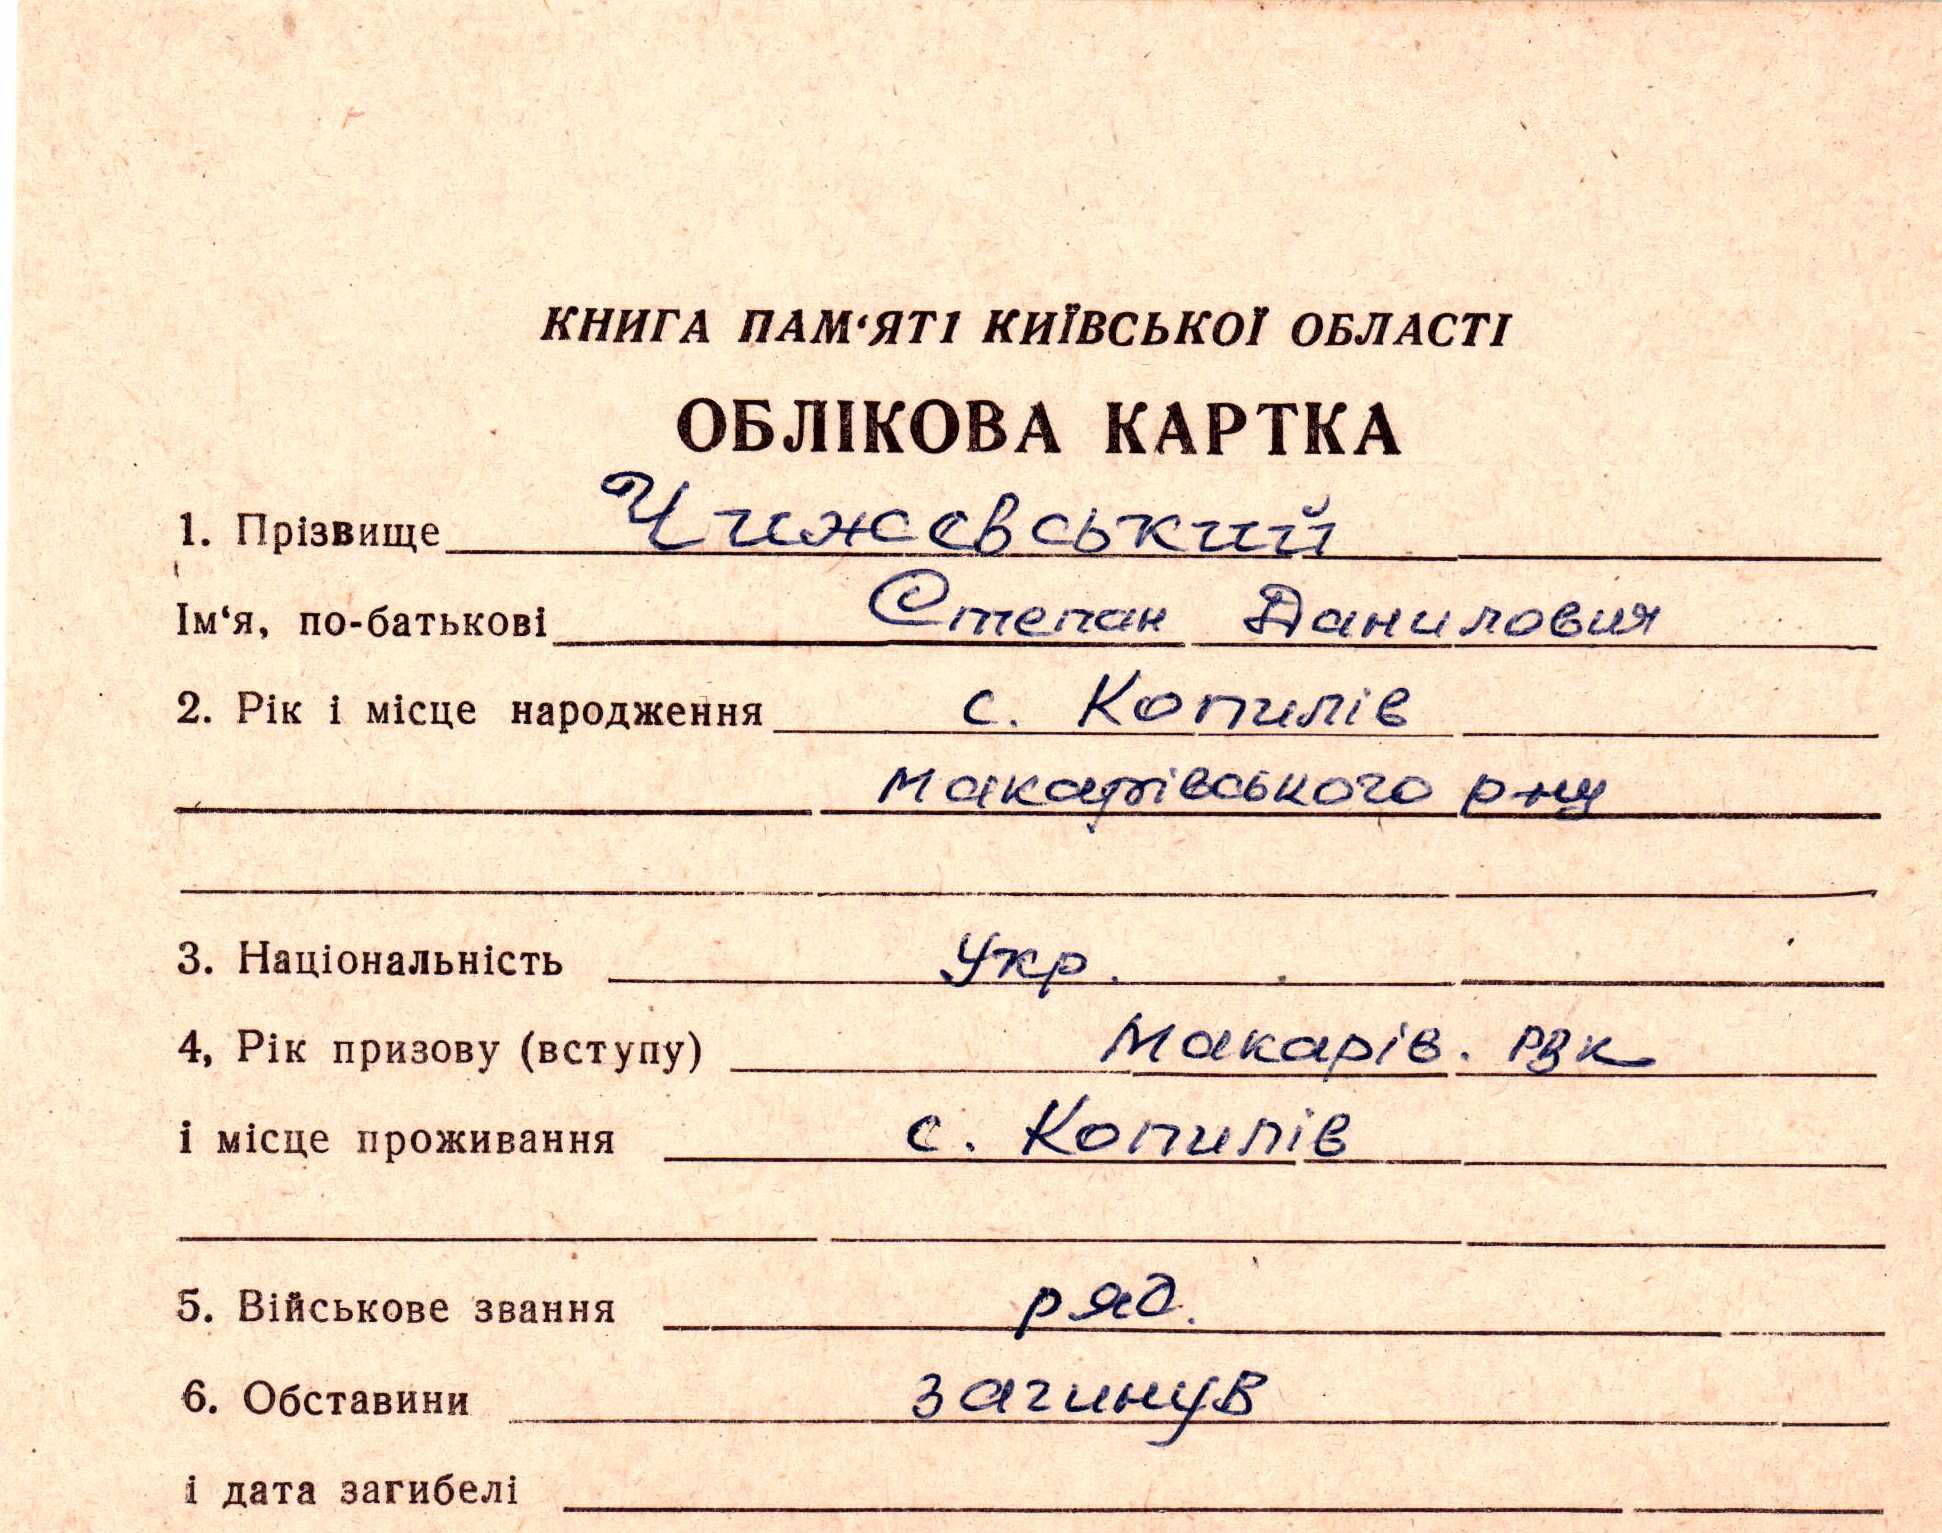 КНИГА ПАМ‘ЯТІ КИЇВСЬКОЇ ОБЛАСТІ
ОБЛІКОВА КАРТКА
1. Прізвище Чижевський
Ім‘я, по-батькові Степан Данилович
2. Рік і місце народження с. Копилів
Макарівського р-ну
3. Національність Укр.
4, Рік призову (вступу) Макарів. РВК
і місце проживання с. Копилів
5. Військове звання ряд.
6. Обставини загинув
і дата загибелі